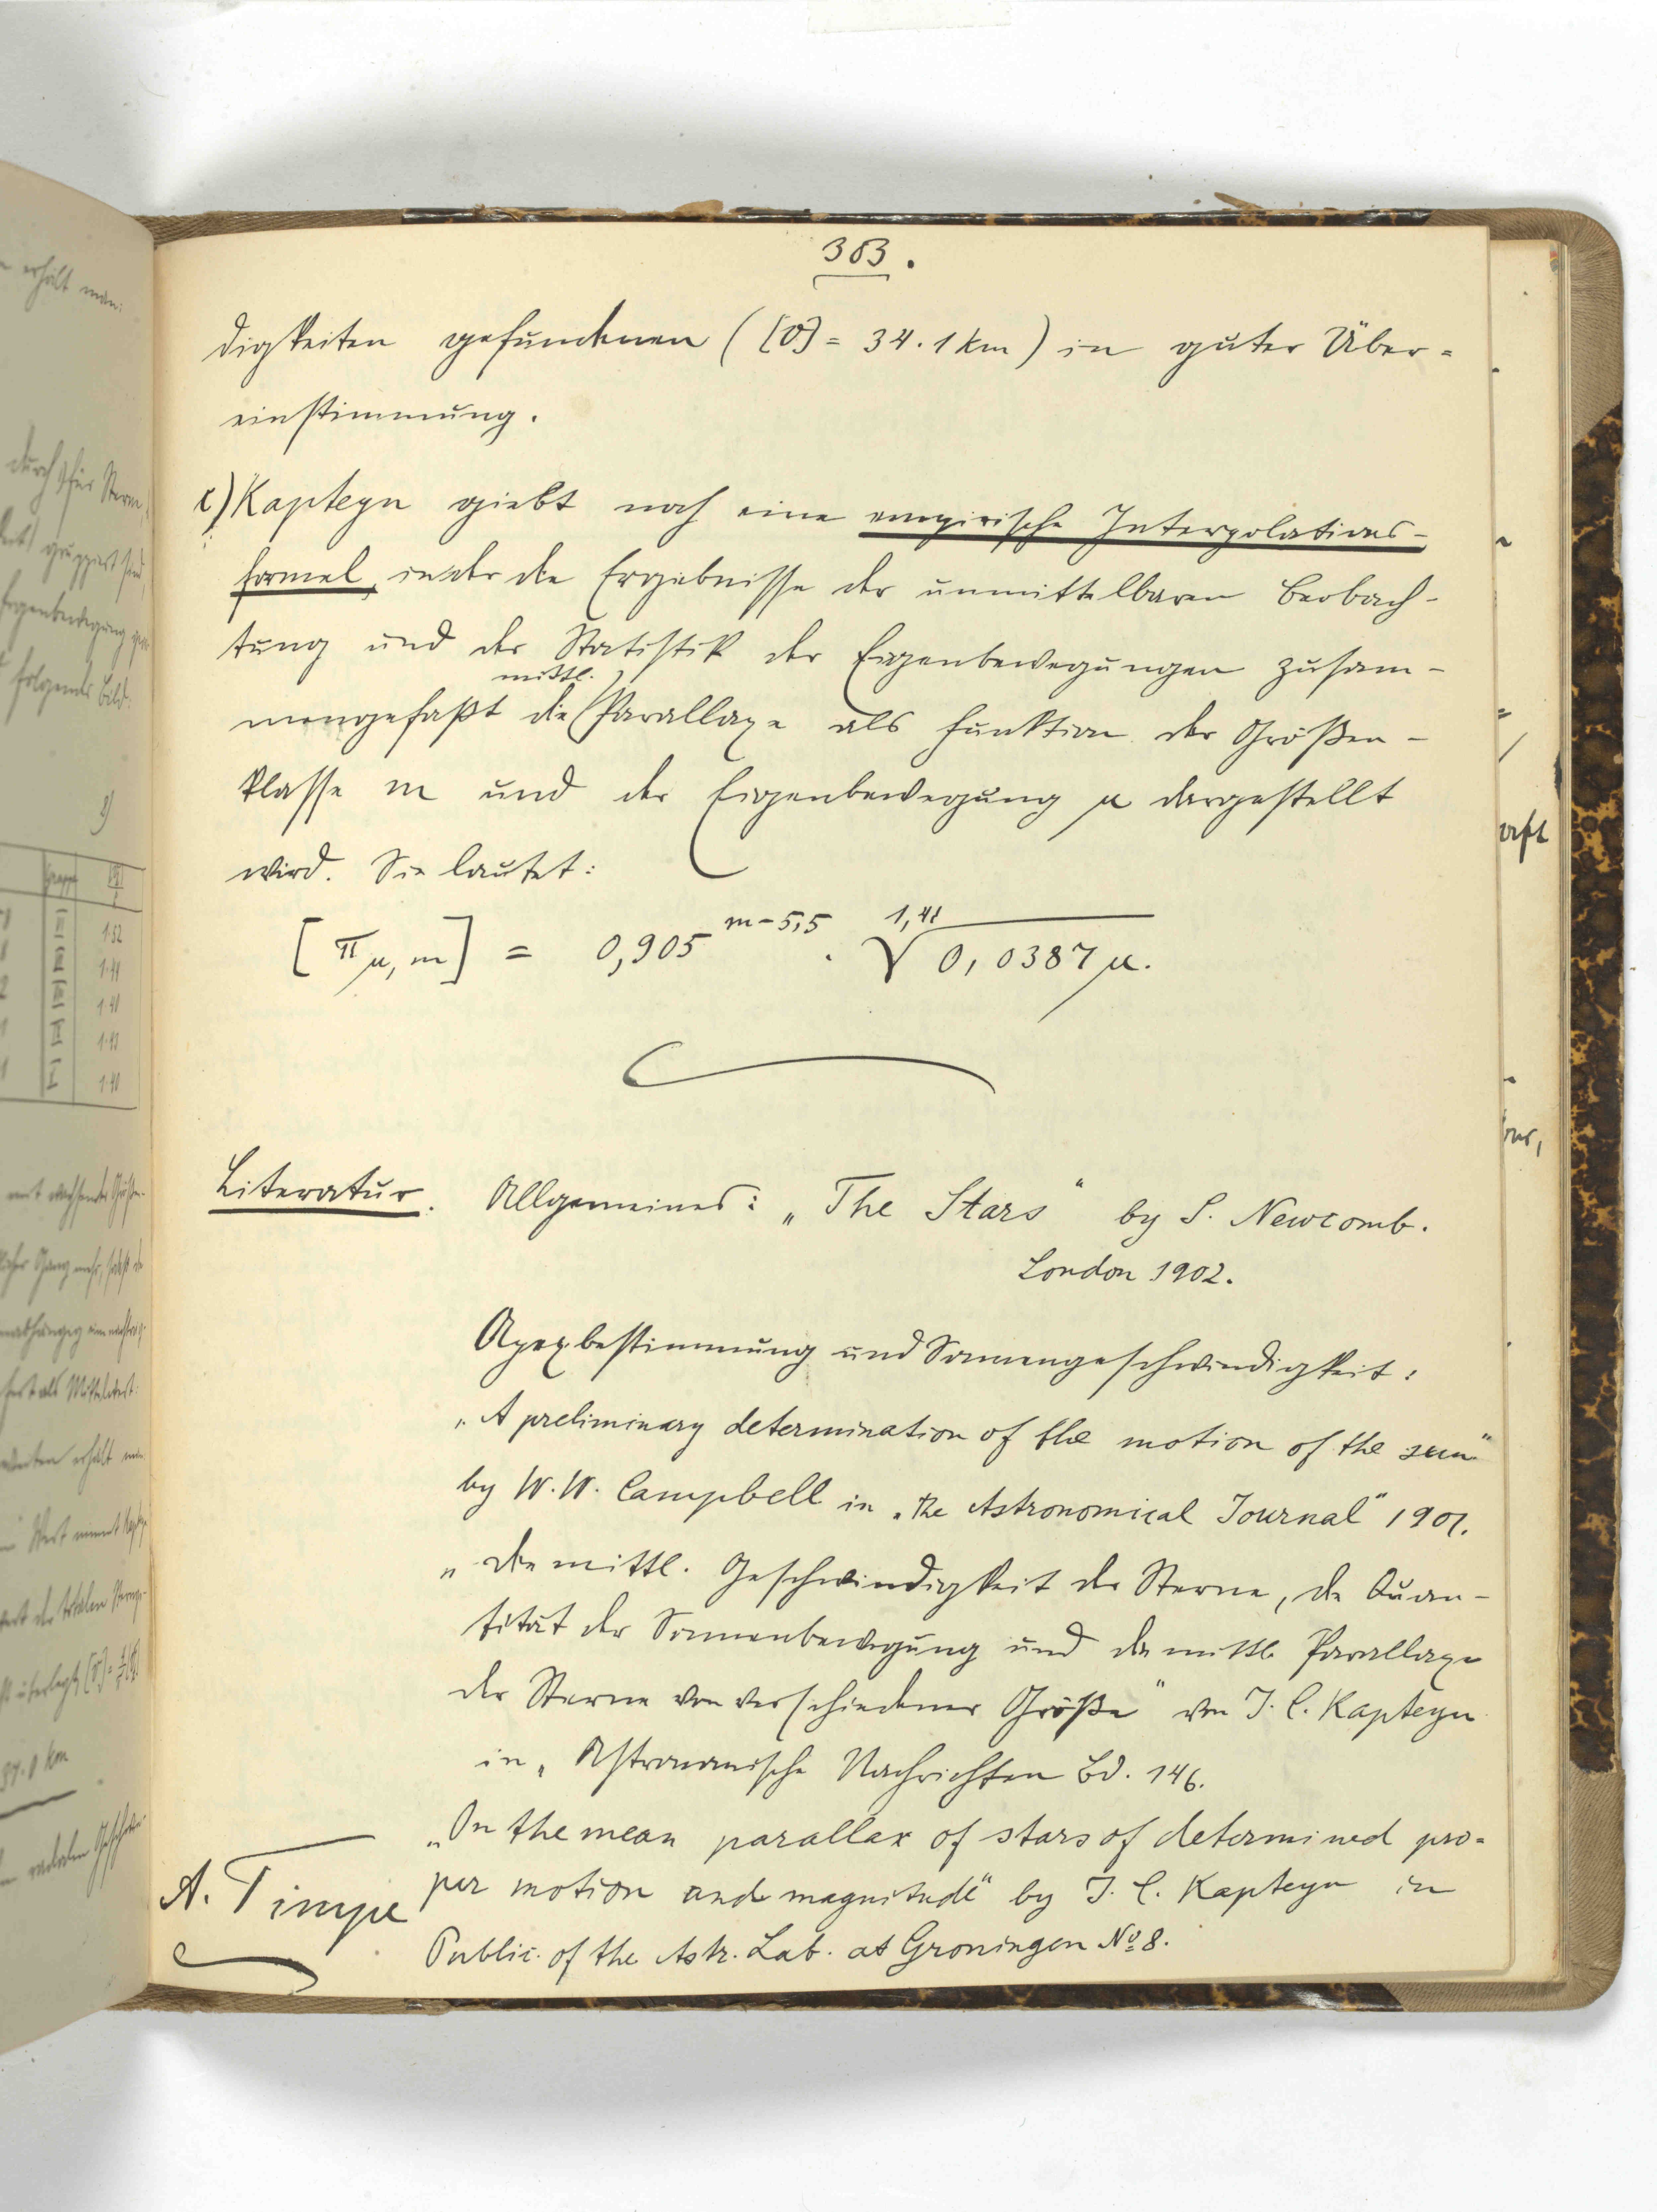 383.
digkeiten gefundenen ([v] = 34.1 km) in guter Über=
einstimmung.
c) Kapteyn giebt noch eine empirische Interpolations-
formel, in der die Ergebnisse der unmittelbaren Beobach-
tung und der Statistik der Eigenbewegungen zusam-
mittl.
mengefaßt die Parallaxe als Funktion der Größen-
klasse m und der Eigenbewegung μ dargestellt
wird. Sie lautet:
[π μ, m] = 0,905 m-5,5 . 1,41 √ 0,0387 μ.
Literatur. Allgemeines: „The Stars“ by S. Newcomb.
London 1902.
Apexbestimmung und Sonnengeschwindigkeit:
„A preliminary determination of the motion of the sun“
by W. W. Campbell in „the Astronomical Journal“ 1901.
„Die mittl. Geschwindigkeit der Sterne, die Quan-
tität der Sonnenbewegung und die mittl. Parallaxe
der Sterne von verschiedener Größe“ von J. C. Kapteyn
in „Astronomische Nachrichten Bd. 146.
„On the mean parallax of stars of determined pro=
per motion and magnitude“ by J. C. Kapteyn in
Public. of the Astr. Lab. at Groningen No 8.
A. Timpe